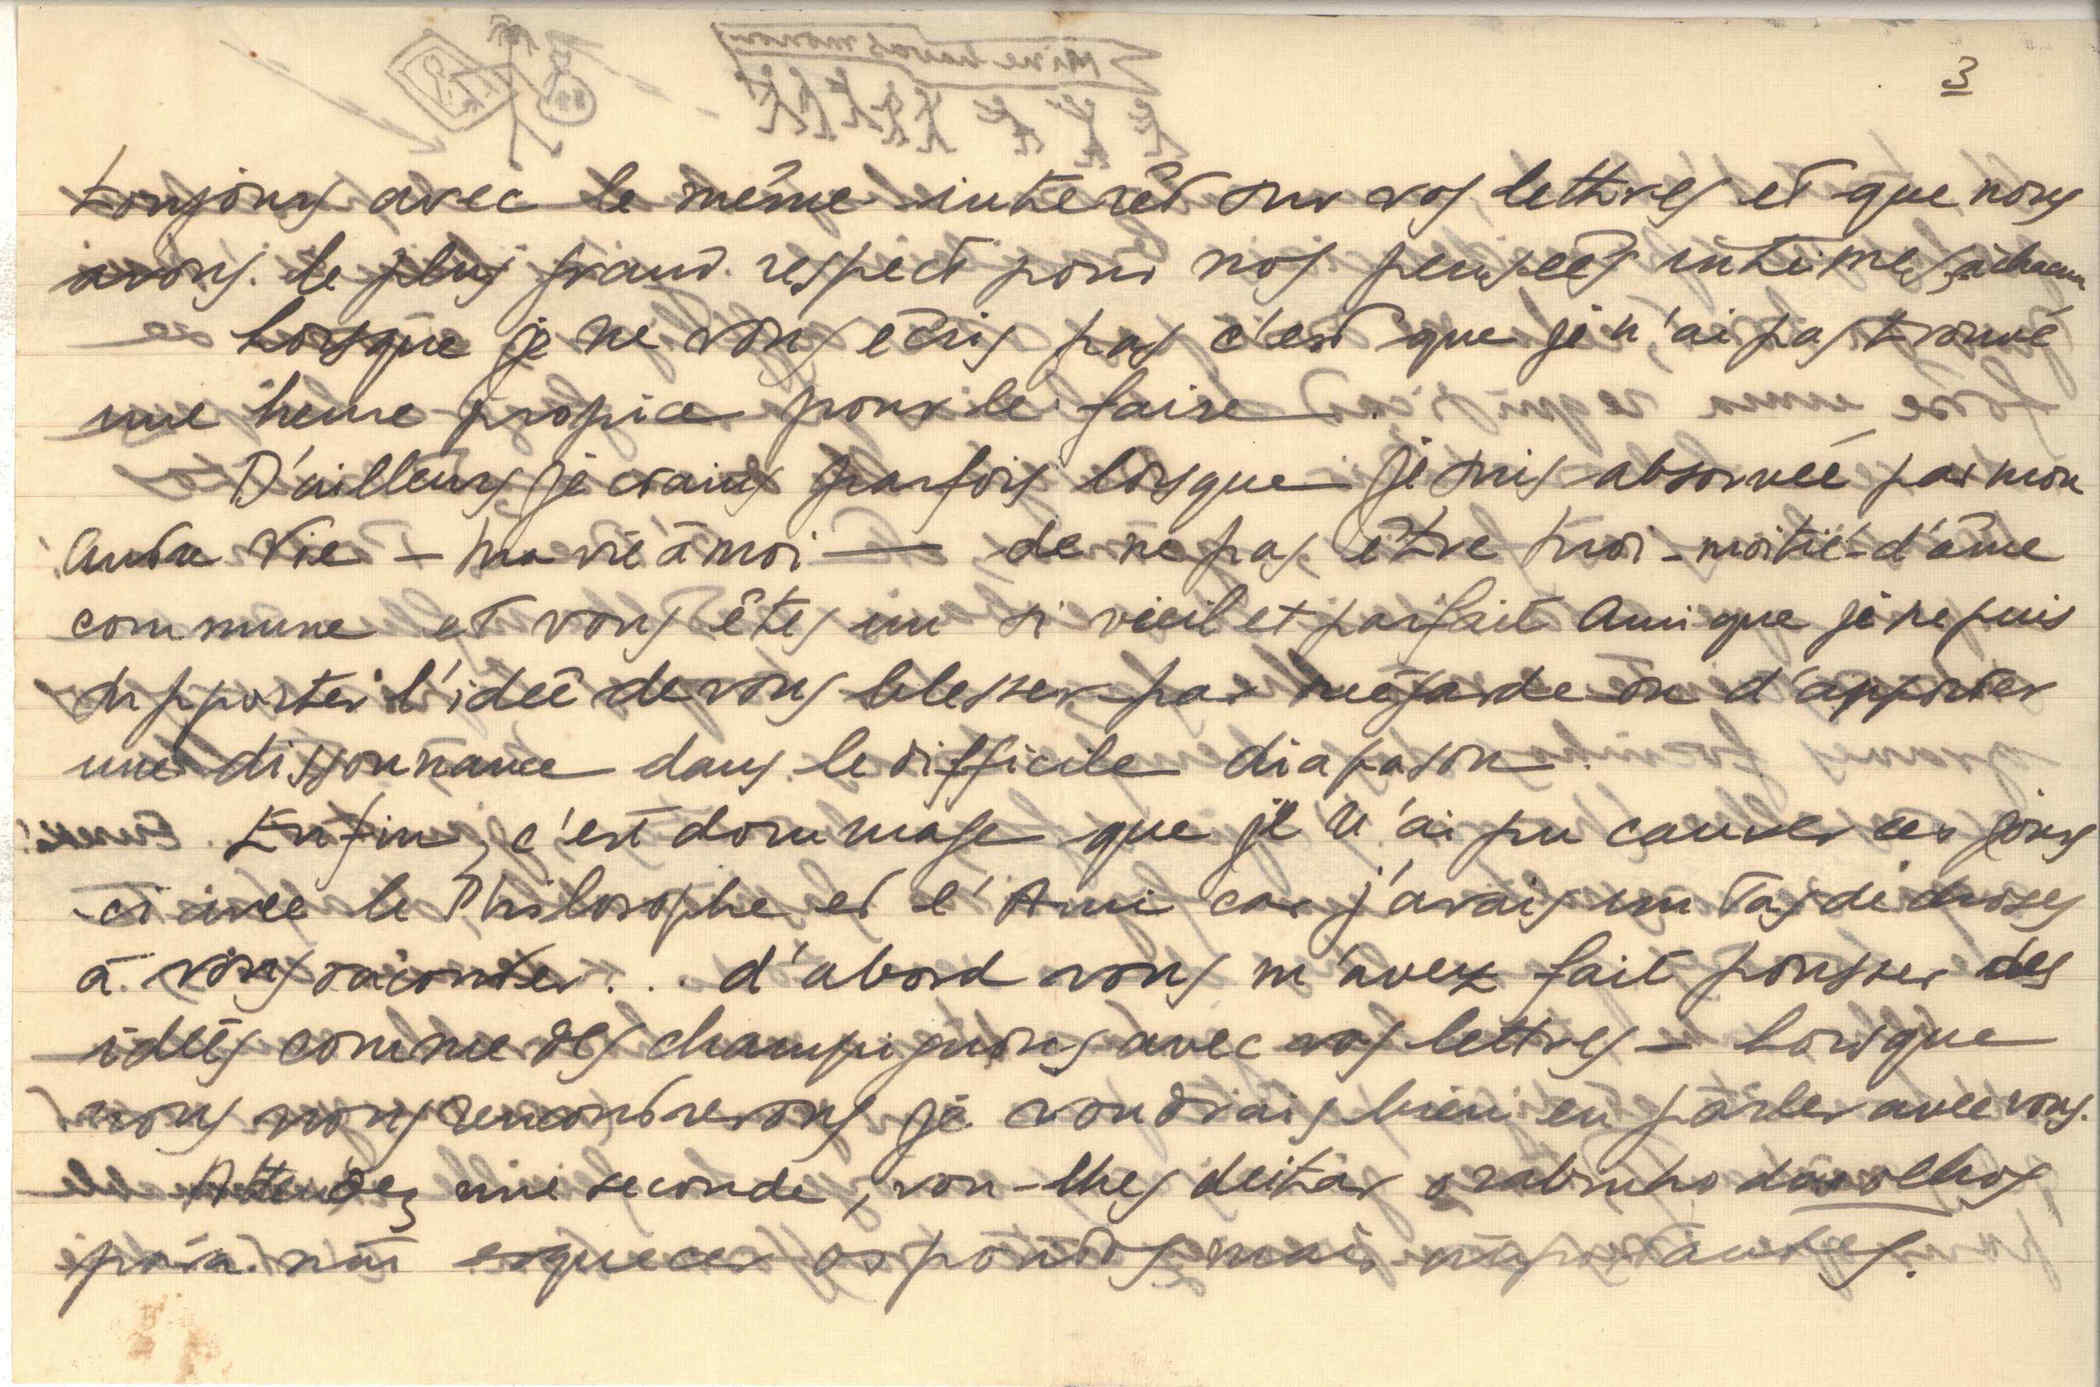 3
toujours avec le même intérêt sur vos lettres et que nous
avons le plus grand respect pour nos pensées intimes, à chacun
Lorsque je ne vous écris pas c'est que je n'ai pas trouvé
une heure propice pour le faire.
D'ailleurs je crains parfois lorsque je suis absorvée par mon
Autre Vie — ma vie à moi — de ne pas être moi-moitié-d'âme
commune et vous êtes un si vieil et parfait Ami que je ne puis
supporter l'idée de vous blesser par mégarde ou d'apporter
une dissonnance dans le difficile diapason.
Enfin, c'est dommage que je n'ai pu causer ces jours
ci avec le Philosophe et l'Ami car j'avais un tas de choses
à vous raconter... d'abord vous m'avez fait pousser des
idées comme des champignons avec vos lettres — Lorsque
nous nous rencontrerons je voudrais bien en parler avec vous.
Attendez une seconde, vou-lhes deitar o rabinho dos olhos
para não esquecer os pontos mais importantes.